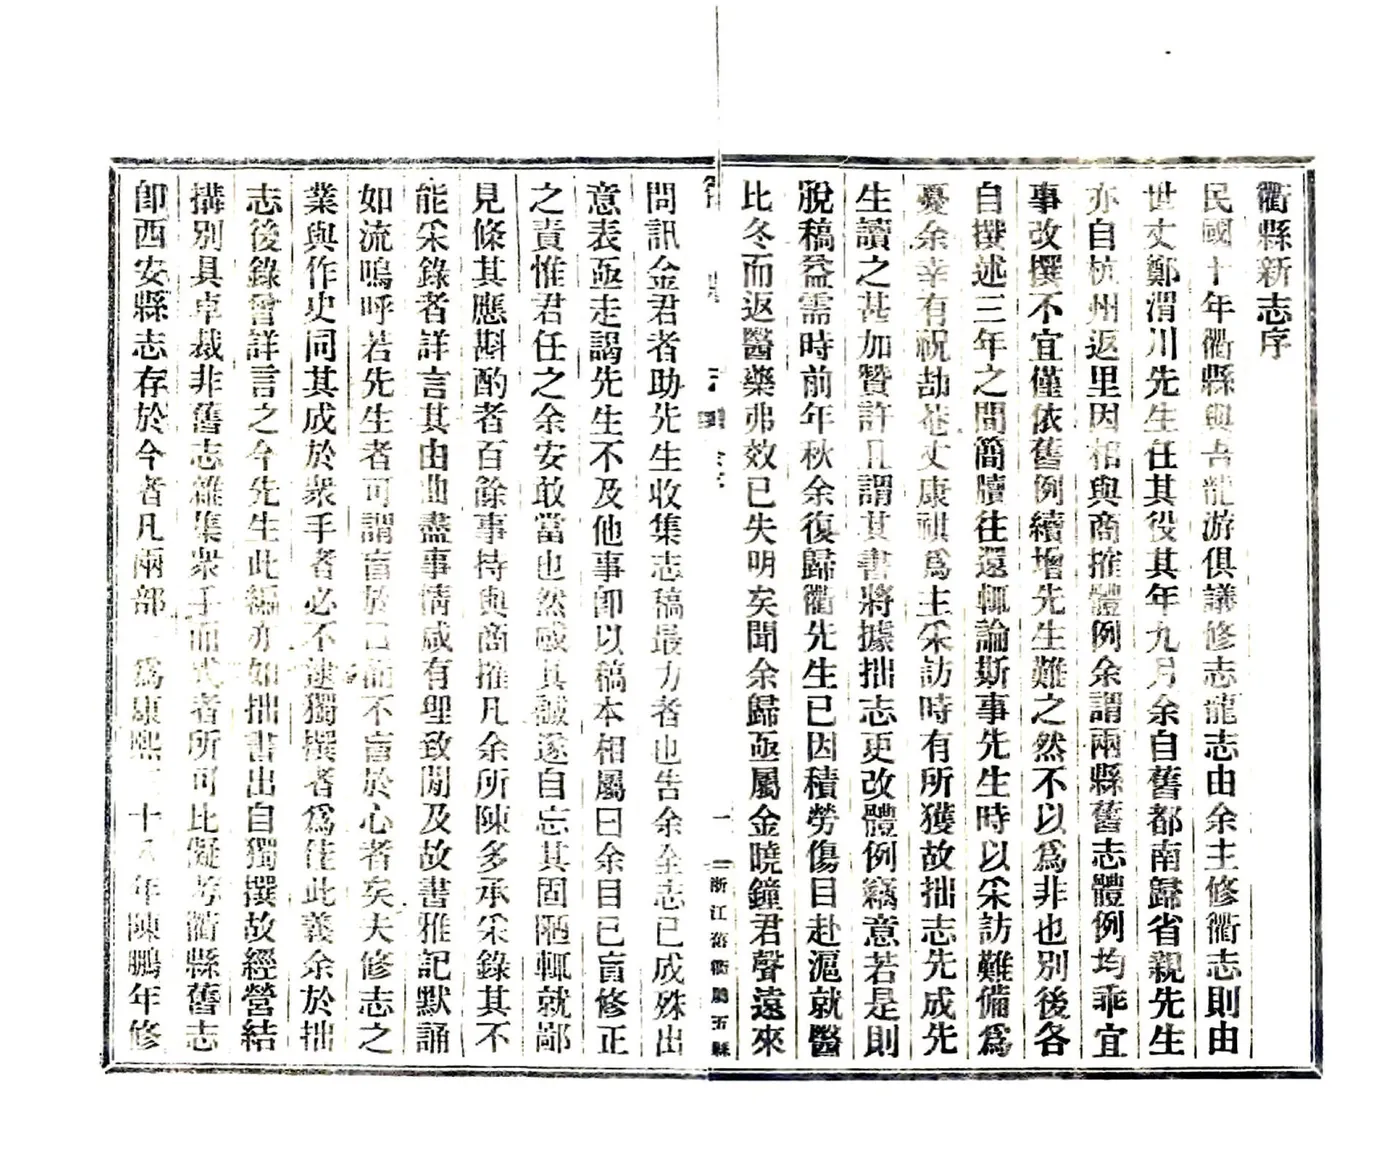 衢縣新志序
民國十年衢縣與吾龍游俱議修志龍志由余主修衢志則由
世丈鄭渭川先生任其役其年九月余自舊都南歸省親先生
亦自杭州返里因相與商搉體例余謂兩縣舊志體例均乖宜
事改撰不宜僅依舊例續增先生難之然不以爲非也別後各
自撰述三年之間簡牘往還輒論斯事先生時以采訪難備爲
憂余幸有祝劼菴丈康祺爲主采訪時有所獲故拙志先成先
生讀之甚加贊許且謂其書將據拙志更改體例竊意若是則
脫稿益需時前年秋余復歸衢先生已因積勞傷目赴滬就醫
比冬而返醫藥弗效已失明矣聞余歸亟屬金曉鐘君聲遠來
一
浙江舊衢屬五縣
問訊金君者助先生收集志稿最力者也告余全志已成殊出
意表亟走謁先生不及他事卽以稿本相屬曰余目已盲修正
之責惟君任之余安敢當也然感其誠遂自忘其固陋輒就鄙
見條其應斟酌者百餘事持與商搉凡余所陳多承采錄其不
能采錄者詳言其由曲盡事情咸有理致間及故書雅記默誦
如流嗚呼若先生者可謂盲於目而不盲於心者矣夫修志之
業與作史同其成於衆手者必不逮獨撰者爲佳此義余於拙
志後錄曾詳言之今先生此編亦如拙書出自獨撰故經營結
搆別具卓裁非舊志雜集衆手而式者所可比擬考衢縣舊志
卽西安縣志存於今者凡兩部一爲康熙三十八年陳鵬年修